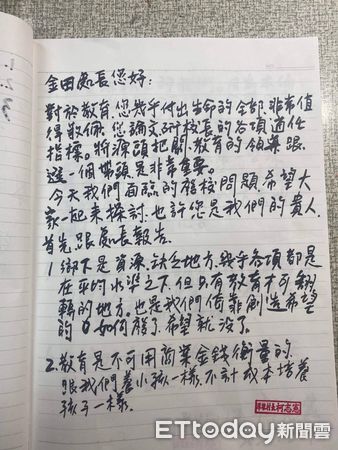 金田處長您好:
對於教育,您幾乎付出生命的全部,非常值
得敬佩,您論文研校長的各項適任
指標。將源頭把關,教育的領導跟
這一個幫頭是非常重要。
今天我們面臨的廢校問題,希望大
家一起來探討,也許您是我們的貴人,
首先,跟處長報告
1.鄉下是資源缺乏地方,幾乎各項都是
在平均水準之下,但只有教育才可翻
轉的地方,也是我們倚靠創造希望
的,如何廢了,希望就沒了。
2.教育是不可用商業金錢衡量的,
跟我們養小孩一樣,不計成本培養
孩子一樣。
柯志宏
ETtoday新聞雲